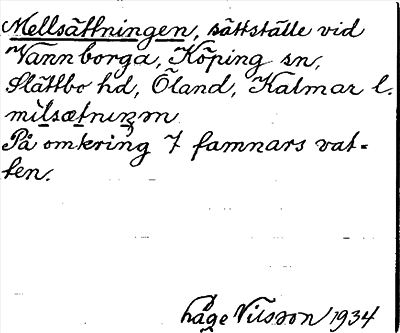 Mellsättningen, sättställe vid
Vannborga, Köping sn,
Slättbo hd, Öland, Kalmar l.
På omkring 7 famnars vat-
ten.
Åge Nilsson 1934